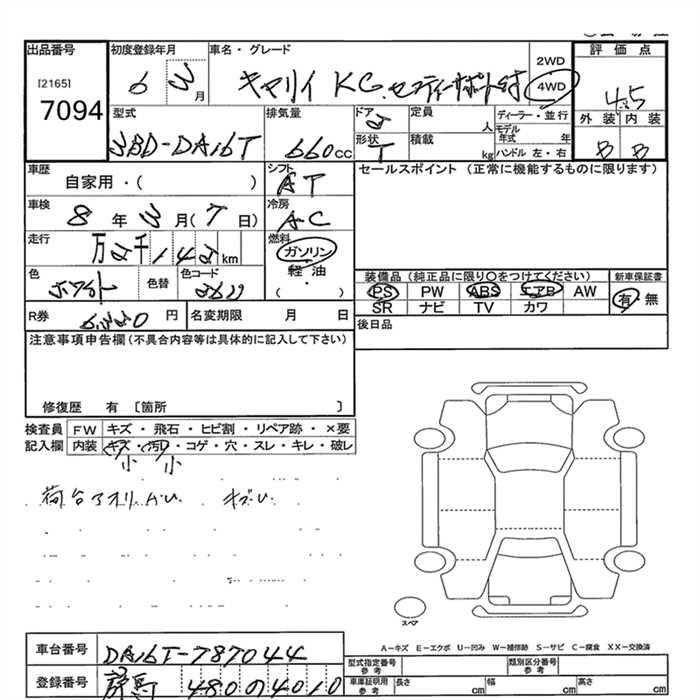 出品番号 初度登録年月 車名・グレード 2WD 評価点
[2165] 6 3 月 キャリイ KC.セーフティーサポート付 4WD 4.5
7094 型式 排気量 ドア 2 定員 人 ディーラー・並行 外装 内装
3BD-DA16T 660cc 形状 T 積載 kg モデル年式 年 B B
ハンドル 左・右
車歴 シフト セールスポイント (正常に機能するものに限ります)
自家用・( ) AT
車検 冷房
8 年 3 月 ( 7 日) A-C
走行 燃料
万 2 千 1 4 2 km ガソリン
軽油
( ・ )
色 色替 色コード 装備品 (純正品に限り○をつけてください) 新車保証書
ホワイト 26U PS PW ABS エアB AW 有・無
SR ナビ TV カワ
R券 円 名変期限 月 日 後日品
注意事項申告欄(不具合内容等は具体的に記入して下さい)
修復歴 有 〔箇所 〕
検査員 FW キズ・飛石・ヒビ割・リペア跡・×要
記入欄 内装 キズ・汚れ・コゲ・穴・スレ・キレ・破レ
小 小
荷台アオリ
スペア
A-キズ E-エクボ U-凹み W-補修跡 S-サビ C-腐食 XX-交換済
車台番号 DA16T-787044 型式指定番号 参考 類別区分番号 参考
登録番号 群馬 480 の 4010 車庫証明用 参考 長さ cm 幅 cm 高さ cm